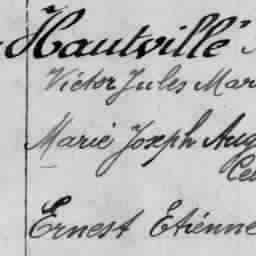 Hautville
Victor Jules Mar
Marie Joseph Aug
Cel
Ernest Etienne